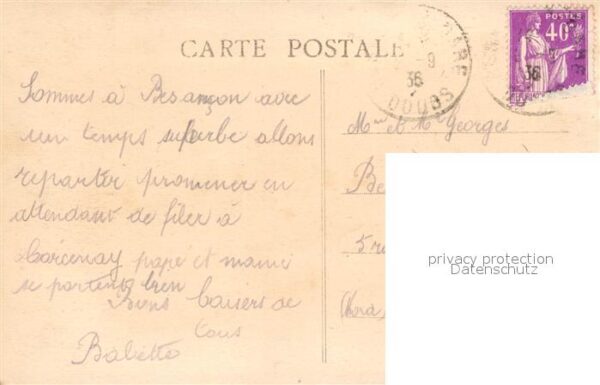 CARTE POSTALE
POSTES
40c
-9
36
DOUBS
36
Sommes à Besançon avec
un temps superbe allons
repartir promener en
attendant de filer à
Corcenay papé et mamie
se portent bien
Bons baisers de
tous
Babette
Mme et Mr Georges
Be
5 r
privacy protection
Datenschutz